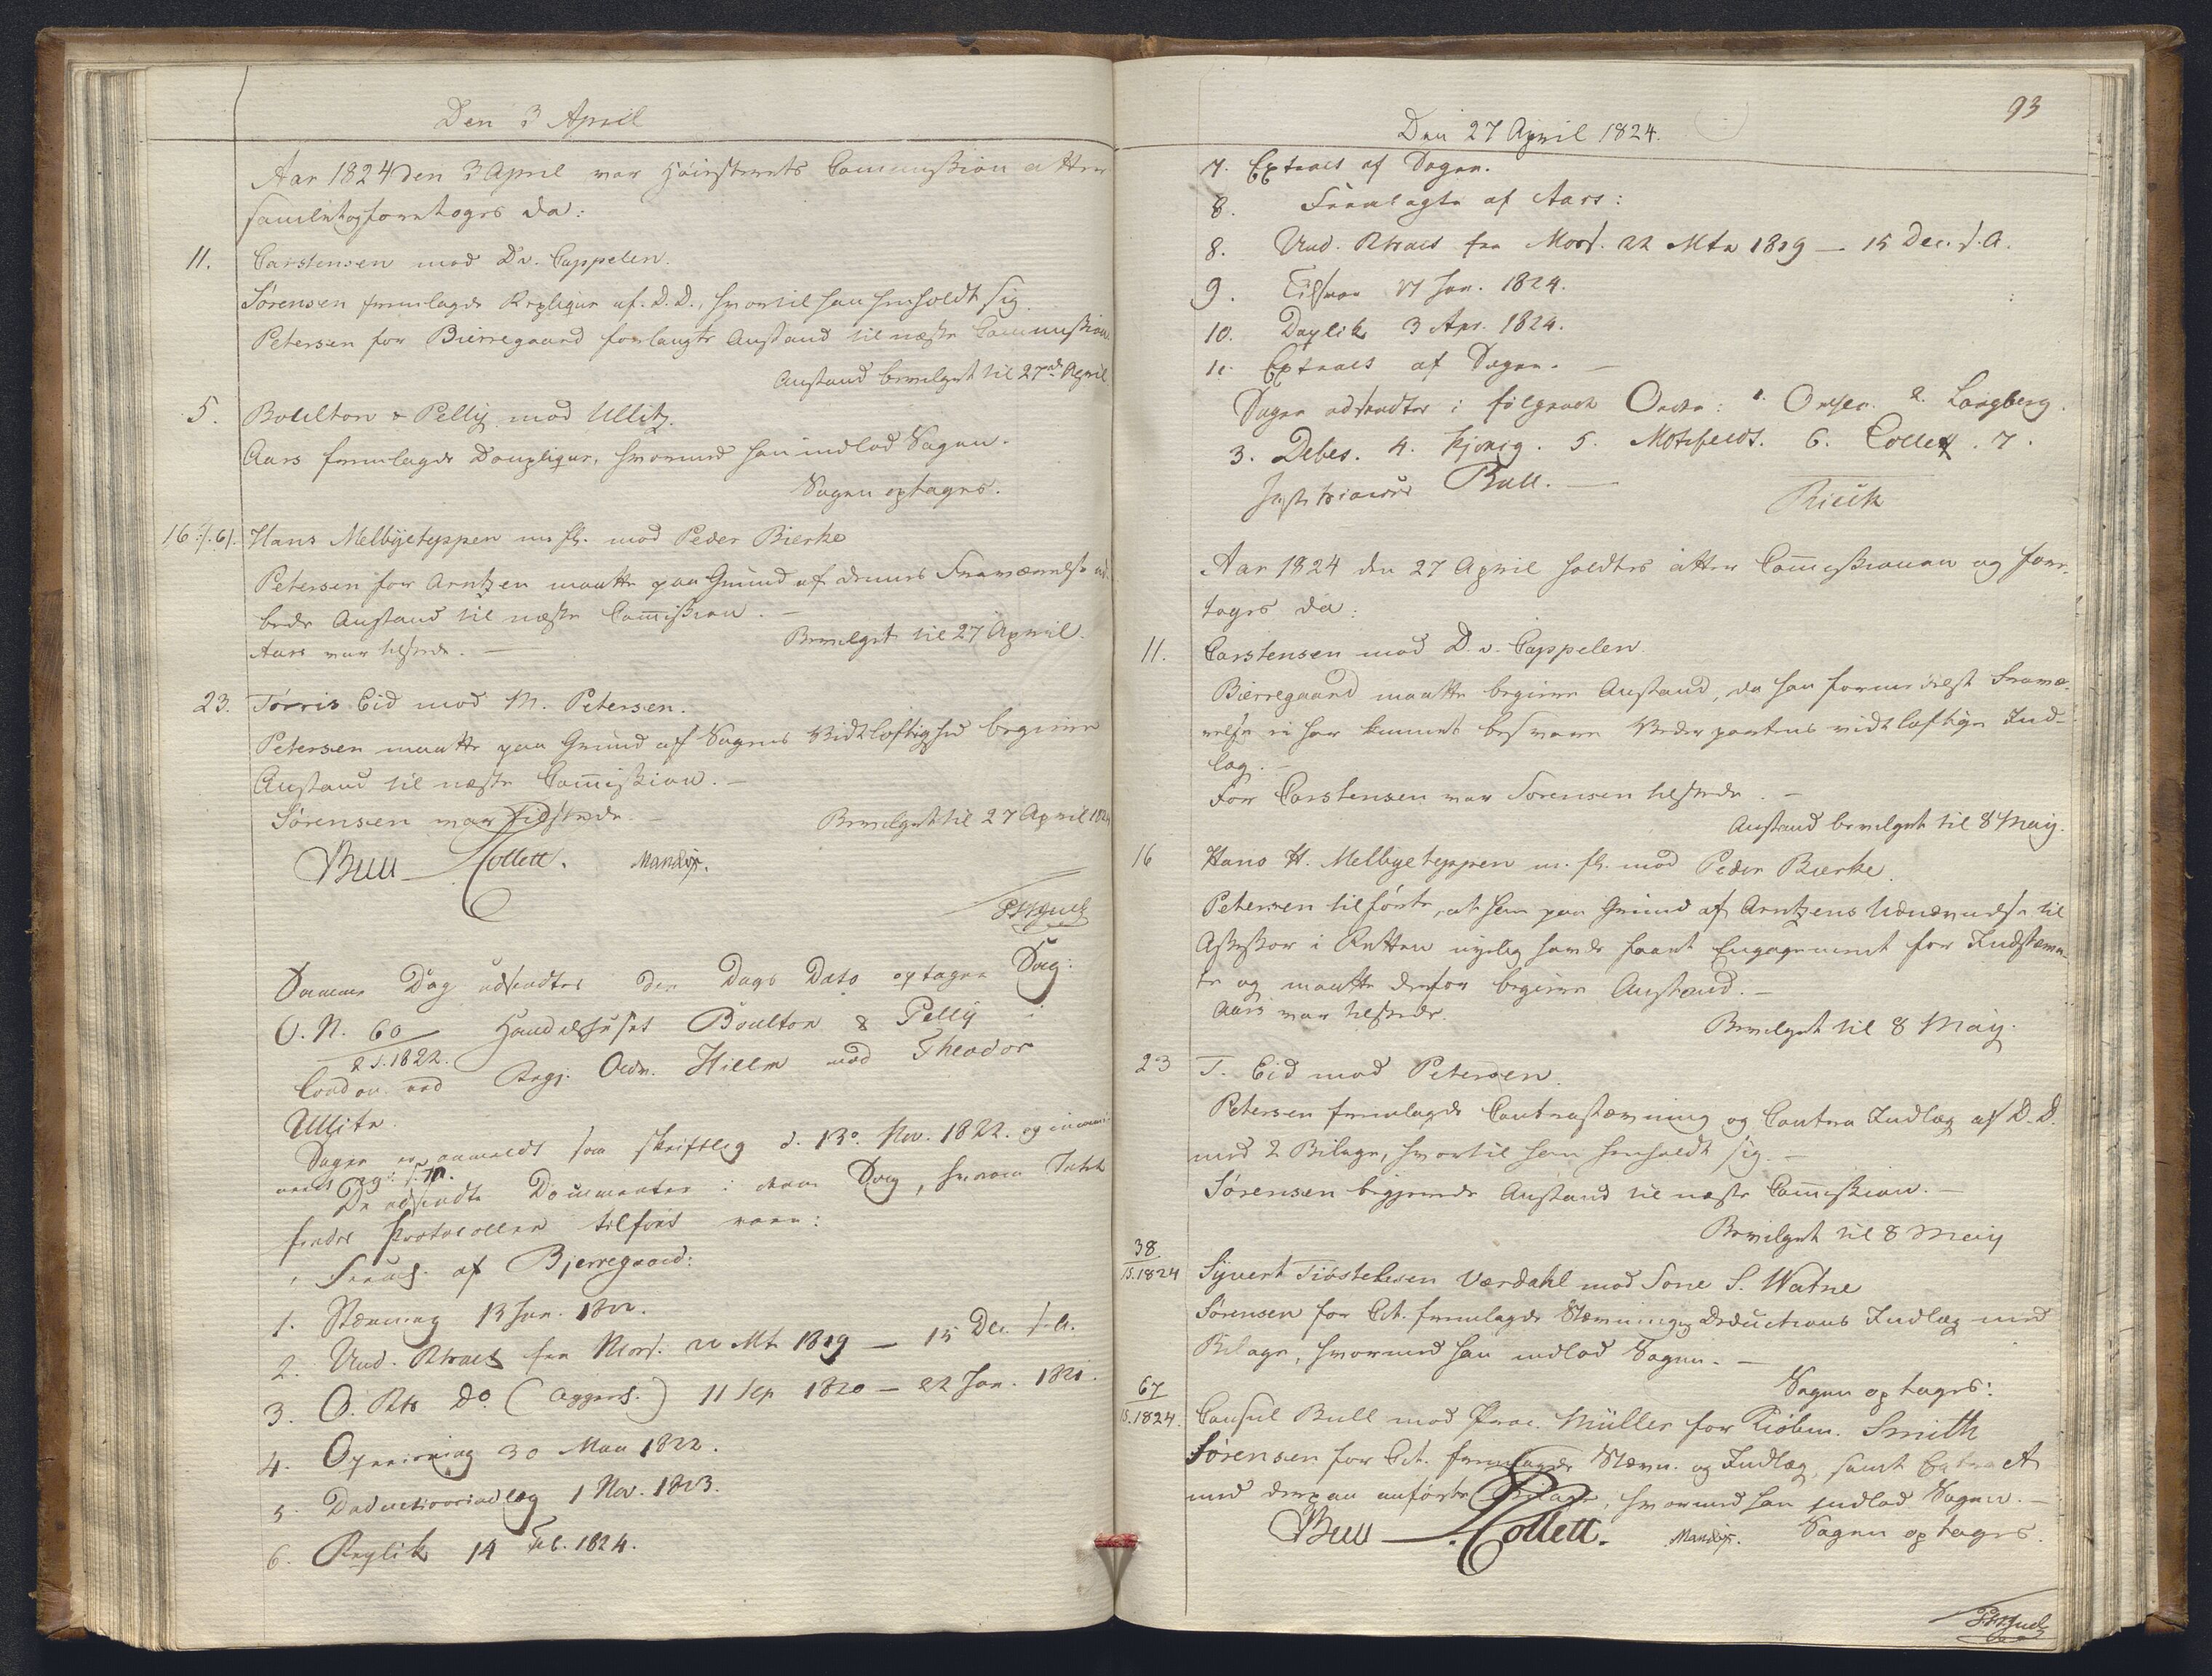 Den 3 April
Aar 1824 den 3 April var Höiesterets Commission atter
samlet og foretoges da:
11. Carstensen mod D. v. Cappelen.
Sörensen fremlagde Repliqve af D.D., hvortil han henholdt sig.
Petersen for Bierregaard forlangte Anstand til næste Commission
Anstand bevilget til 27de April
5. Boulton & Pelly mod Ullitz.
Aars fremlagde Doupliqve, hvormed han indlod Sagen.
Sagen optages.
16 Hans Melbyeteppen m. fl. mod Peder Bierke
Petersen for Arntzen maatte paa Grund af dennes Fraværelse ud-
bede Anstand til næste Commission. –
Aars var tilstede. –
Bevilget til 27 April.
23. Törris Eid mod M. Petersen.
Petersen maatte paa Grund af Sagens Vidtløftighed begiere
Anstand til næste Commission. –
Sörensen var tilstede. –
Bevilget til 27 April 1824
Bull Collett. Mandix.
Samme Dag udsendtes den Dags Dato optagne Sag:
O. N. 60
2 S. 1822. Handelshuset Boulton & Pelly i
London ved Regj. Adv. Hielm mod Theodor
Ullitz.
Sagen er anmeldt som skriftlig d. 13de Nov. 1822. og
De udsendte Documenter i denne Sag, hvorom Intet
findes Protocollen tilfört vare:
Freml. af Bjerregaard:
1. Stævning 13 Jun. 1822.
2. Und. Rtsact fra Mosf. 22 Mts 1819 – 15 Dec. s. A.
3. O. Rts Do (Aggersh.) 11 Sep 1820 – 22 Jan. 1821.
4. Opreisning 30 Mai 1822.
5. Deductionsindlæg 1 Nov. 1823.
6. Replik 14 Feb. 1824.
93
Den 27 April 1824.
7. Extract af Sagen.
8. Fremlagte af Aars:
8. Und. Rtsact fra Mosf. 22 Mts 1819 – 15 Dec. s. A.
9. Tilsvar 17 Jan. 1824.
10. Duplik 3 Apr. 1824.
11. Extract af Sagen. –
Sagen udsendtes i fölgende Orden: 1. Omsen. 2. Langberg.
3. Debes. 4. Hjorig. 5. Motzfeldt. 6. Collett. 7.
Justitiarius Bull. –
Aar 1824 den 27 April holdtes atter Commissionen og fore-
toges da:
11. Carstensen mod D. v. Cappelen.
Bierregaard maatte begiere Anstand, da han formedelst Fravæ-
relse ei har kunnet besvare Vederpartens vidtløftige Ind-
læg. –
For Carstensen var Sörensen tilstede. –
Anstand bevilget til 8 Maij.
16 Hans H. Melbyeteppen m. fl. mod Peder Bierke.
Petersen tilförte, at han paa Grund af Arntzens Udnævnelse til
Assessor i Retten nylig havde faaet Engagement for Indstævn-
te og maatte derfor begiere Anstand. –
Aars var tilstede.
Bevilget til 8 Maij.
23 T. Eid mod Petersen.
Petersen fremlagde Contrastævning og Contra Indlæg af D.D.
med 2 Bilage, hvortil han henholdt sig. –
Sörensen begjerede Anstand til næste Commission. –
Bevilget til 8 Maij
38
1S. 1824 Syvert Tiöstelsen Værdahl mod Sone S. Watne
Sörensen for Cit. fremlagde Stævning og Deductions Indlæg med
Bilage, hvormed han indlod Sagen. –
Sagen optages:
67
1S. 1824. Consul Bull mod Proc. Müller for Kiöbm. Smith
Sörensen for Cit. fremlagde Stævn. og Indlæg, samt Extract
med derpaa anförte Bilage, hvormed han indlod Sagen. –
Bull Collett. Mandix. Sagen optages.